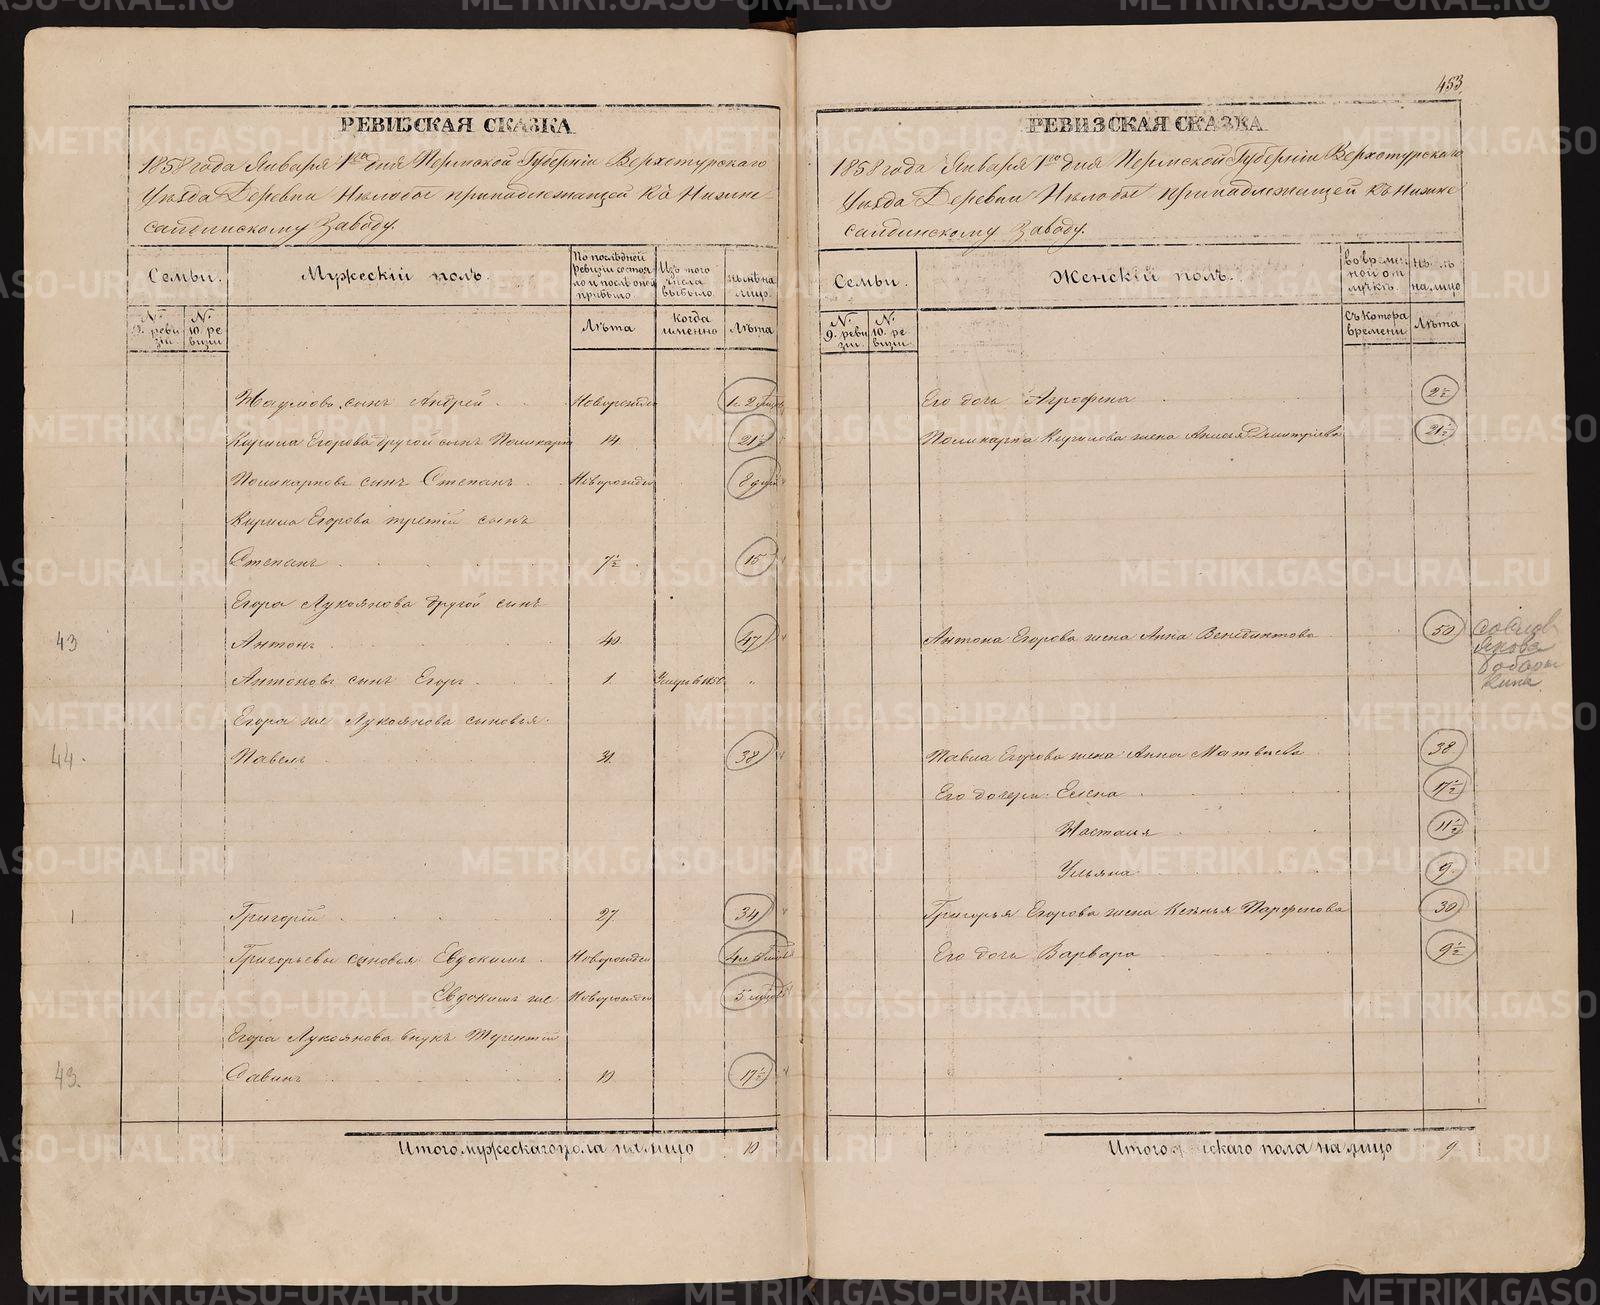 453
РЕВИЗСКАЯ СКАЗКА
1858 года Января 1го дня Пермской Губерніи Верхотурскаго
Уѣзда Деревни Нелобы принадлежащей къ Нижне-
салдинскому Заводу.
Семьи.
Мужескій полъ.
По послѣдней ревизіи состояло и послѣ оной прибыло
Изъ того числа выбыло.
нынѣ на лицо.
№ 9. ревизіи
№ 10. ревизіи
Лѣта
когда именно
Лѣта
Наумовъ сынъ Андрей Новорожде 1. 2
Кирила Егорова другой сынъ Поликарпъ 14. 21½
Поликарповъ сынъ Степанъ Новорожде 8 дней
Кирила Егорова третій сынъ
Степанъ 7½ 15
Егора Лукоянова другой сынъ
43 Антонъ 40. 47
Антоновъ сынъ Егоръ 1. Умеръ в 1850 "
Егора же Лукоянова сыновья.
44. Павелъ 31. 38
1 Григорій 27. 34
Григорьевы сыновья Евдокимъ Новорожде
Евдокимъ же Новорожде 5
Егора Лукоянова внукъ Терентій
43. Савинъ 10 17½
Итого мужескаго пола на лицо 10
РЕВИЗСКАЯ СКАЗКА
1858 года Января 1го дня Пермской Губерніи Верхотурскаго
Уѣзда Деревни Нелобы принадлежащей къ Нижне
салдинскому Заводу.
Семьи.
Женскій полъ.
во временной отлучкѣ.
на лицо
№ 9. ревизіи
№ 10. ревизіи
Съ котора времени
Лѣта
Его дочь Агрофена 2½
Поликарпа Кирилова жена Анисья Дмитріева 21½
Антона Егорова жена Анна Венедиктова 50
Павла Егорова жена Анна Матвѣева 38
Его дочери: Елена 17½
Настасья 11½
Ульяна 9
Григорья Егорова жена Ксенья Парфенова 30
Его дочь Варвара 9½
Итого скаго пола на лицо 9
METRIKI.GASO-URAL.RU